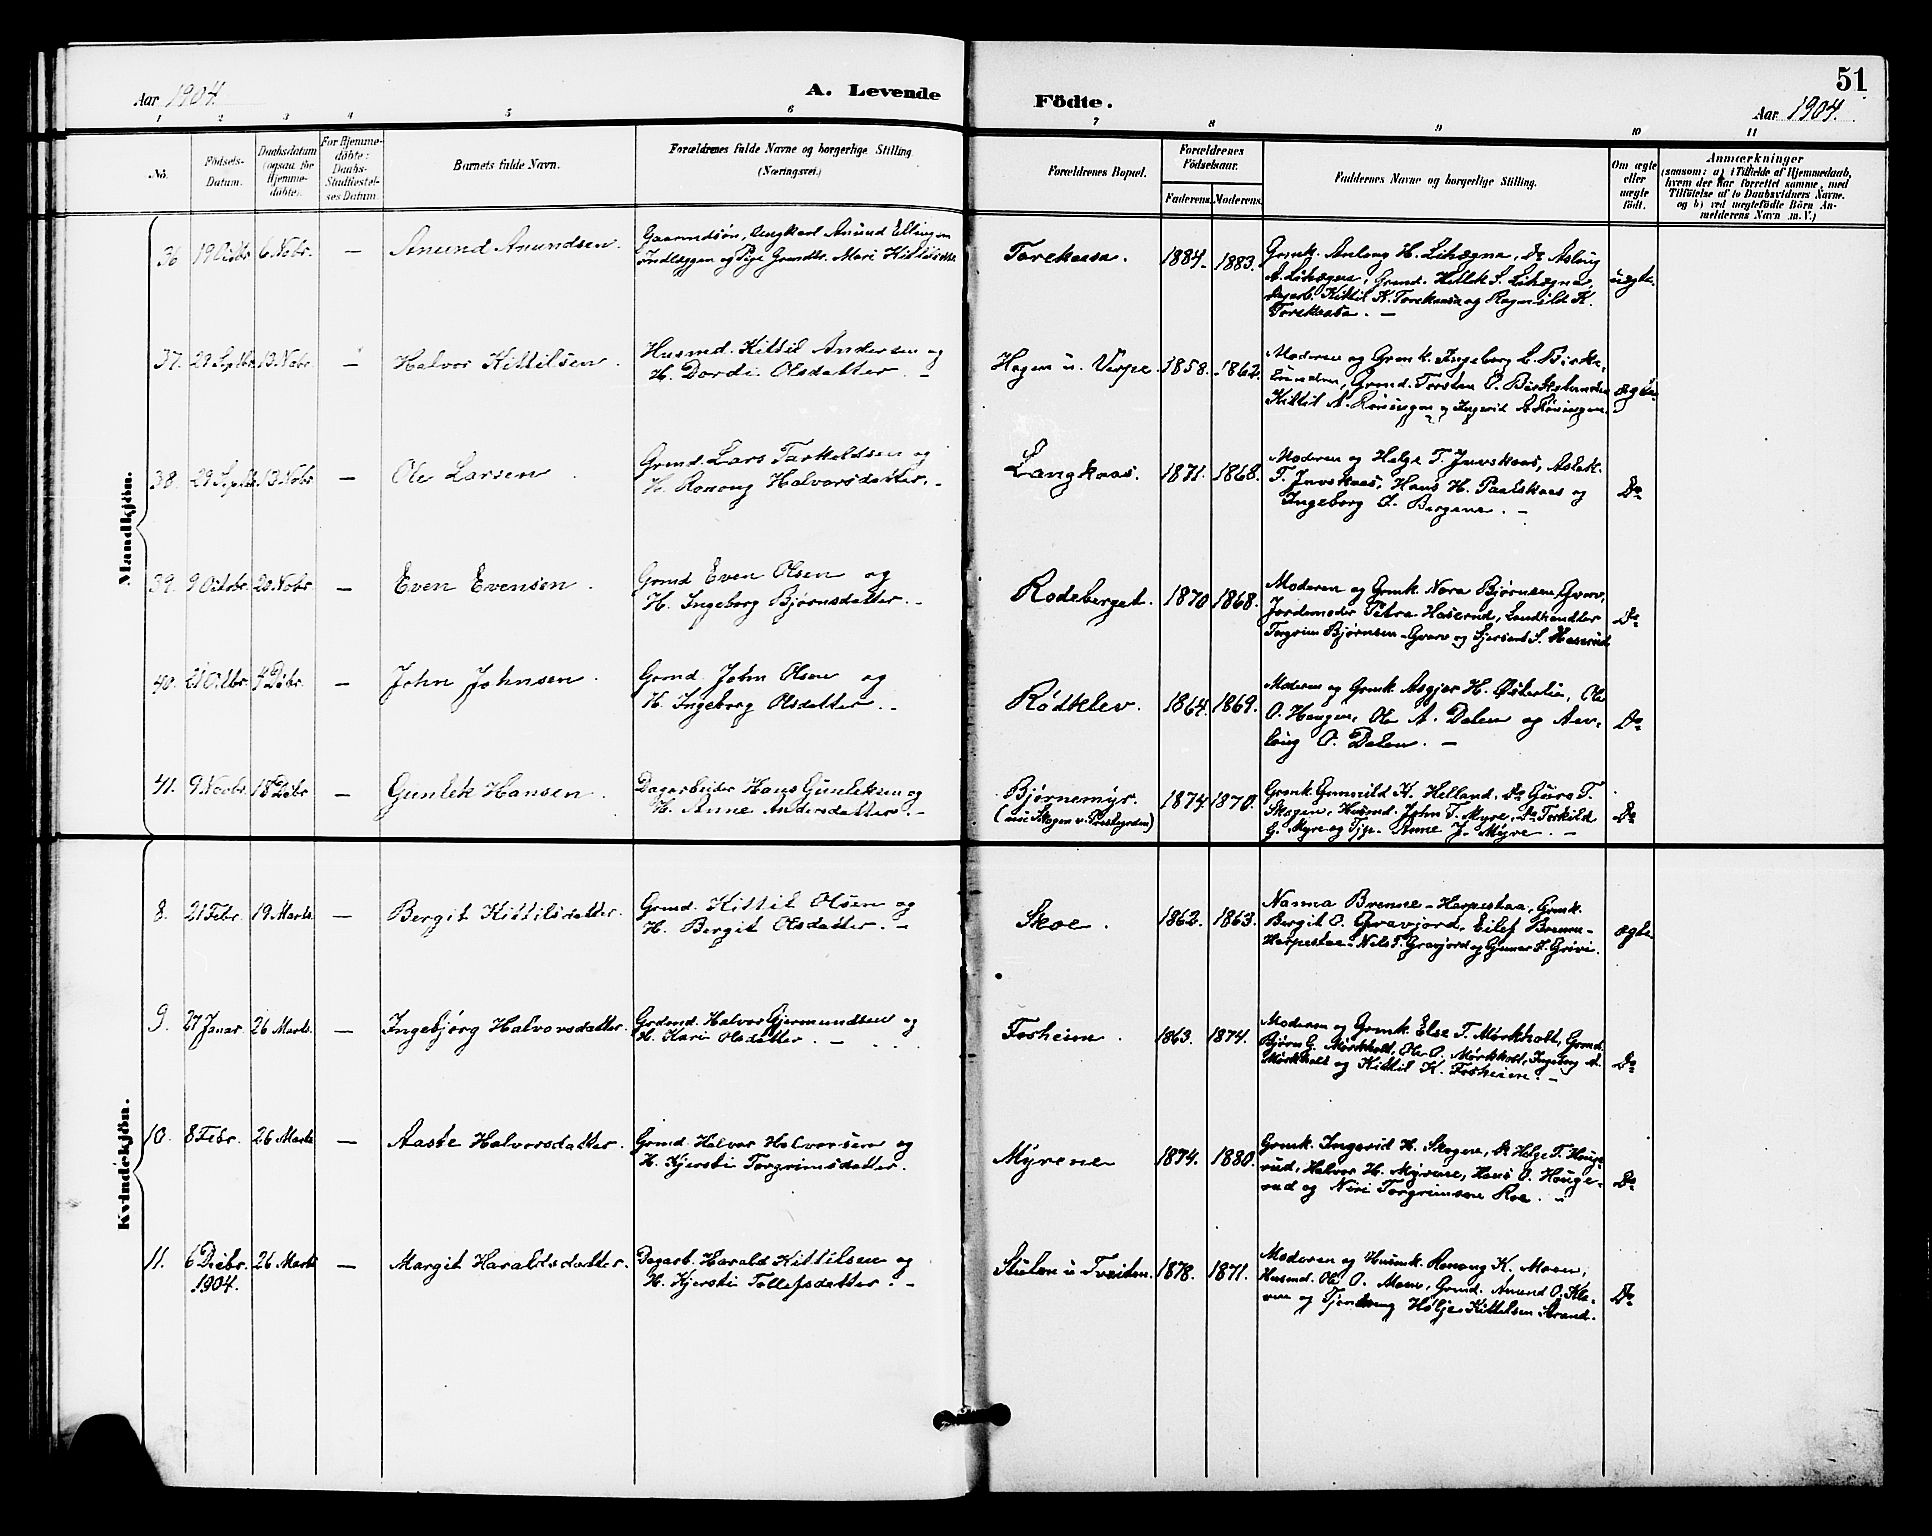 51
Aar 1904.
A. Levende
Födte.
Aar 1904.
1 2 3 4 5 6 7 8 9 10 11
No.
Födsels-
Datum.
Daabsdatum
(ogsaa for
Hjemme-
döbte).
For Hjemme-
döbte:
Daabs-
Stadfæstel-
ses Datum.
Barnets fulde Navn.
Forældrenes fulde Navne og borgerlige Stilling
(Næringsvei.)
Forældrenes Bopæl.
Forældrenes
Födselsaar.
Faderens.
Moderens.
Faddernes Navne og borgerlige Stilling.
Om ægte
eller
uægte
født.
Anmærkninger
(saasom: a) i Tilfælde af Hjemmedaab,
hvem der har forrettet samme, med
Tilföielse af to Daabsvidners Navne.
og b) ved uægtefödte Börn An-
melderens Navn m. V.)
Mandkjön.
36 19 Octbr 6 Nobr. — Anund Anundsen.
Gaardmdsön, Ungkarl Anund Ellingsen
og Pige Mari
Torekaasa. 1884. 1883.
Grmk. Anlaug H. Lihægna, Do Aslaug
A. Lihægna, Grmd. Kittil S. Lihægna,
Dagarb. Kittil K. Torekaasa og Ragnild K.
Torekaasa. —
uægte.
37. 29 Septbr 13 Nobr. — Halvor Kittilsen.
Husmd. Kittil Andersen og
H. Dordi Olsdatter. —
Hagen u. Verpe. 1858. 1862.
Moderen og Grmk. Ingeborg L. Birke-
lunden, Grmd. Torsten O. Birkelunden
Kittil A. Röningen og Ingerid A. Röningen.
ægte
38. 29 Septbr 13 Nobr — Ole Larsen.
Grmd. Lars Tarkeldsen og
H. Ronoug Halvorsdatter. —
Langkaas. 1871. 1868.
Moderen og Helge T. Juvskaas, Aslak
T. Juvskaas, Hans H. Paalskaas og
Ingeborg O. Bergene. —
Do
39. 9 Octobr. 20 Nobr. — Even Evensen.
Grmd Even Olsen og
H. Ingeborg Bjørnsdatter. —
Rodeberget. 1870 1868.
Moderen og Grmk. Nora Bjørnsen, Gvarv,
Jordemoder Petra Haserud, Landhandler
Torgrim Bjørnsen - Gvarv og Sjersant S. Haserud
Do
40. 21 Octbr. 4 Dcbr. — John Johnsen.
Grmd. John Olsen og
H. Ingeborg Olsdatter. —
Rödklev. 1864. 1869.
Moderen og Grmk. Asgjer H. Østerlia, Ole
O. Haugen, Ole A. Dalen og Aas-
laug O. Dalen. —
Do
41. 9 Novbr. 18 Dcbr — Gunlek Hansen.
Dagarbeider Hans Gunleksen og
H. Anne Andersdatter. —
Bjørnemyr. 1874 1870.
(nu Skogen v. Prestegrden)
Grmk. Gunnild K. Helland, Do Guro T.
Skogen, Husmd. John T. Myre, Do Torkild
G. Myre og Tjp. Anne J. Myre. —
Do
Kvindekjön.
8. 21 Febr. 19 Marts. — Bergit Kittilsdatter.
Grmd. Kittil Olsen og
H. Bergit Olsdatter. —
Skoe. 1862. 1863.
Nanna Brenne - Harpestaa, Grmk.
Bergit O. Gravjord, Eilef Brenne-
Harpestaa - Nils T. Gravjord og Gunar S. Grivi.
ægte
9. 27 Januar. 26 Marts. — Ingebjörg Halvorsdatter.
Grdmd. Halvor Gjermundsen og
H. Kari Olsdatter. —
Forheim. 1863. 1874.
Moderen og Grmk. Else T. Mørkholt, Grmd.
Bjørn G. Mørkholt, Ole O. Mørkholt, Ingeborg A.
Mørkholt og Kittil K. Forheim. —
Do
10. 8 Febr. 26 Marts — Aaste Halvorsdatter.
Grmd. Halvor Halvorsen og
H. Kjersti Torgrimsdatter.
Myrene 1874. 1880
Grmk. Ingerid H. Skogen, Do Helge T. Houge-
rud, Halvor H. Myrene, Hans O. Houge-
rud og Niri Torgrimsen Roe.
Do
11. 6 Dcbr. 26 Marts — Margit Haraldsdatter.
1904.
Dagarb. Harald Kittilsen og
H. Kjersti Tollefsdatter. —
Stulen u Tveiten. 1878. 1871.
Moderen og Husmk. Ronoug K. Moen,
Husmd. Ole O. Moen, Grmd. Amund O. Kle-
ven og Tjendreng Hølje Kittilsen Strand.
Do